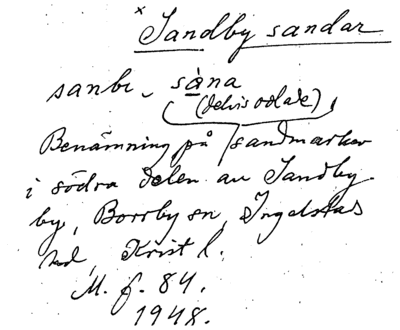 × Sandby sandar
sanbi, sàna
(delvis odlade)
Benämning på sandmarker
i södra delen av Sandby
by, Borrby sn, Ingelstads
hd, Krist l.
M. f. 84.
1948.